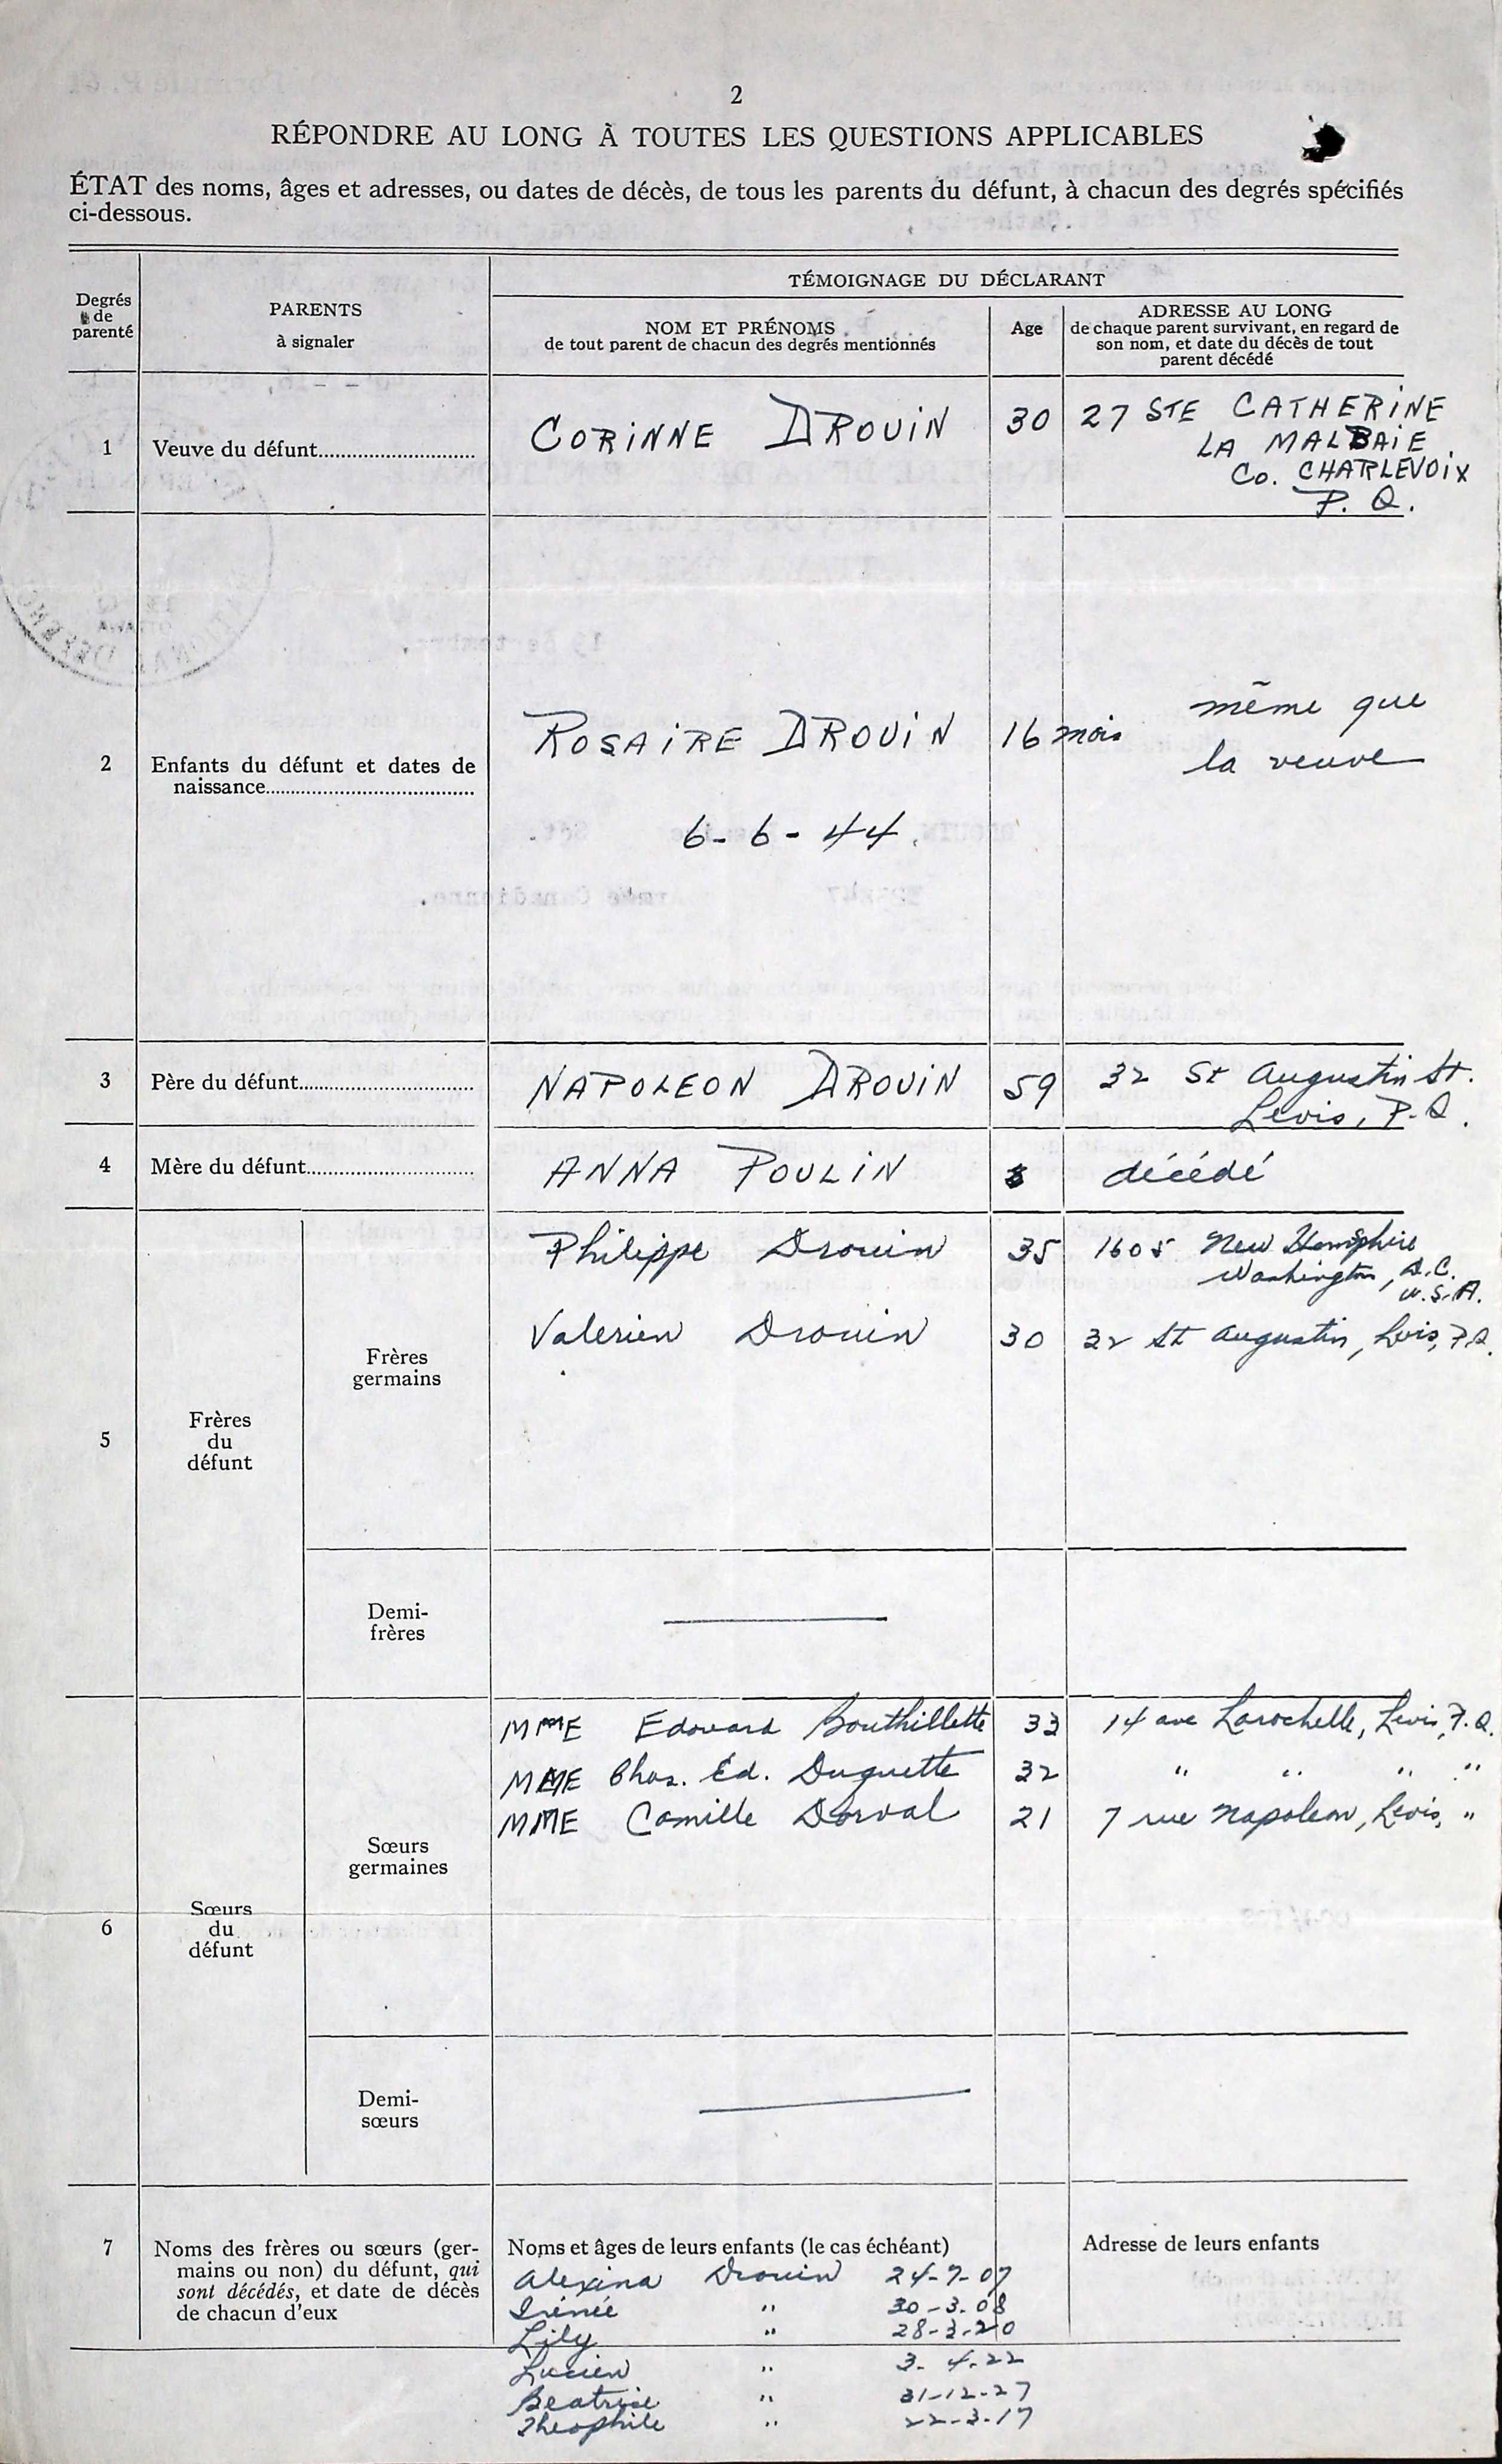 2
RÉPONDRE AU LONG À TOUTES LES QUESTIONS APPLICABLES
ÉTAT des noms, âges et adresses, ou dates de décès, de tous les parents du défunt, à chacun des degrés spécifiés
ci-dessous.
TÉMOIGNAGE DU DÉCLARANT
Degrés
de
parenté
PARENTS
à signaler
NOM ET PRÉNOMS
de tout parent de chacun des degrés mentionnés
Age
ADRESSE AU LONG
de chaque parent survivant, en regard de
son nom, et date du décès de tout
parent décédé
1 Veuve du défunt CORINNE DROUIN 30 27 STE CATHERINE
LA MALBAIE
Co. CHARLEVOIX
P. Q.
2 Enfants du défunt et dates de
naissance
ROSAIRE DROUIN 16 mois même que
la veuve
6-6-44
3 Père du défunt NAPOLEON DROUIN 59 32 St Augustin St.
Levis, P.Q.
4 Mère du défunt ANNA POULIN décédé
5 Frères
du
défunt
Frères
germains
Philippe Drouin 35 1605 New Hemsphire
Washington, D.C.
U.S.A.
Valerien Drouin 30 32 St Augustin, Levis, P.Q.
Demi-
frères
6 Sœurs
du
défunt
Sœurs
germaines
MME Edouard Bouthillette 33 14 ave Larochelle, Levis, P.Q.
MME Chas. Ed. Duquette 32 " " " "
MME Camille Dorval 21 7 rue Napoleon, Levis, "
Demi-
sœurs
7 Noms des frères ou sœurs (ger-
mains ou non) du défunt, qui
sont décédés, et date de décès
de chacun d'eux
Noms et âges de leurs enfants (le cas échéant)
Adresse de leurs enfants
Alexina Drouin 24-7-07
Irénée " 30-3-08
Lily " 28-3-20
Lucien " 3-4-22
Beatrice " 31-12-27
Theophile " 22-3-17